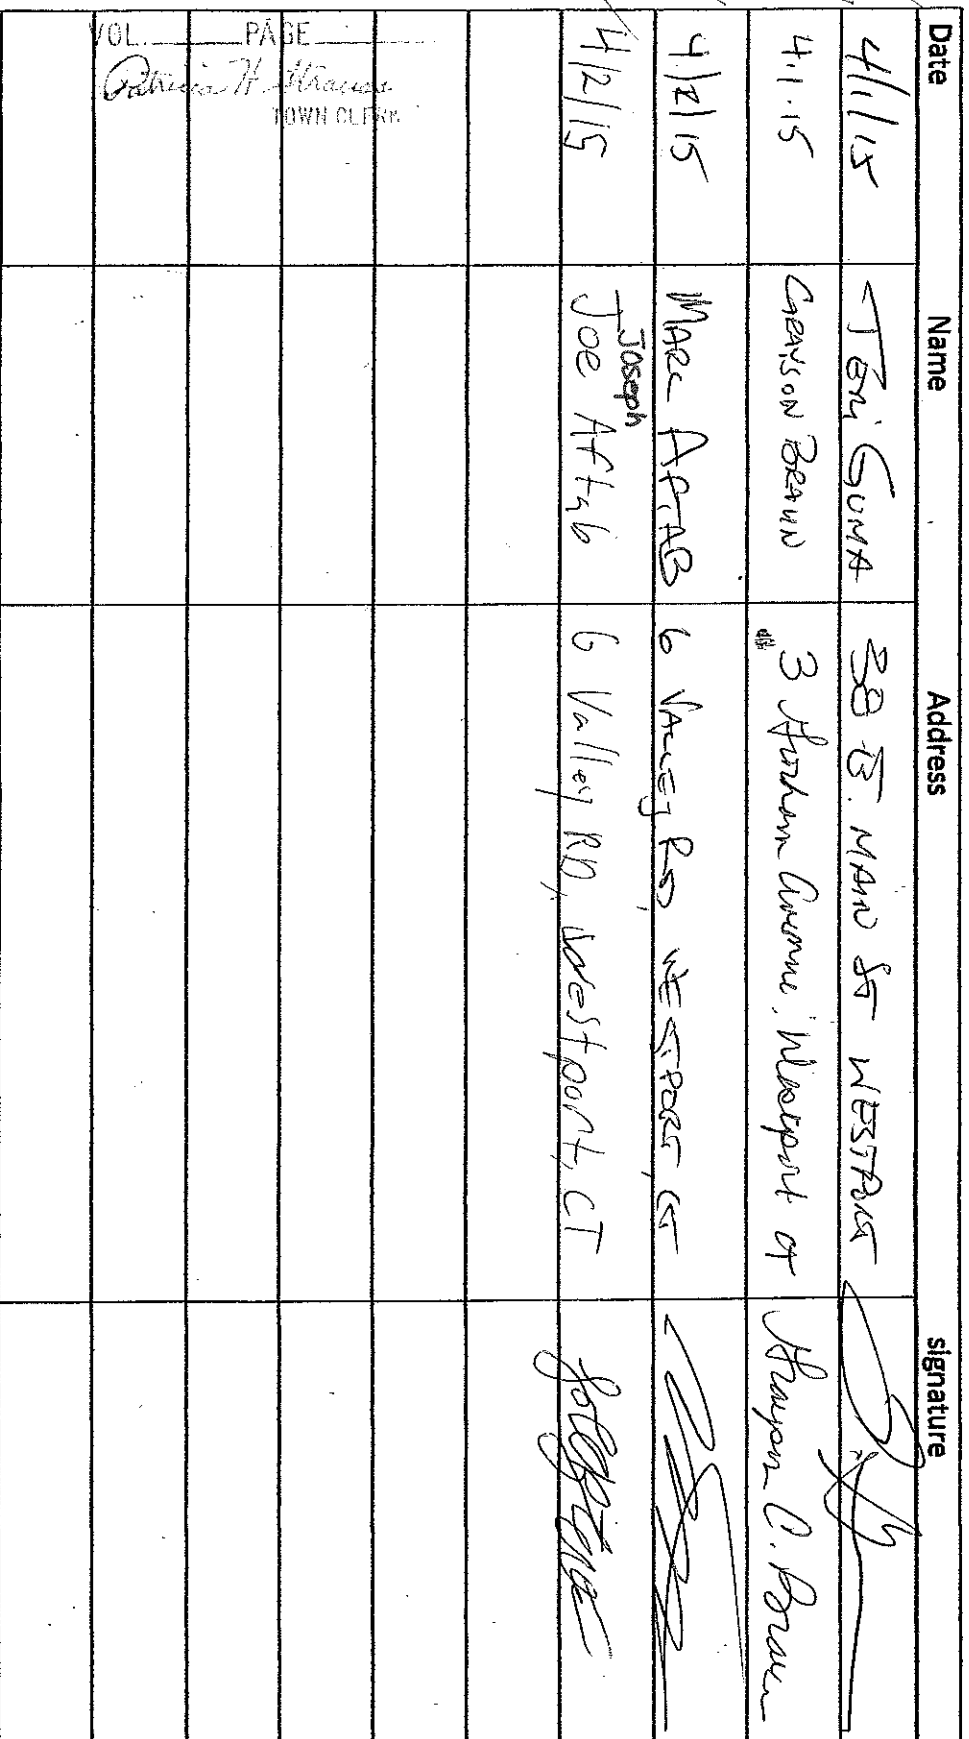 Date Name Address signature
4/1/15 Teri Guma 38 E. MAIN ST WESTPORT
4.1.15 GRAYSON BRAUN 3 Gorham Avenue, Westport CT Grayson C. Braun
4/2/15 MARC AFTAB 6 VALLEY RD WESTPORT, CT
Joseph
4/2/15 Joe Aftab 6 Valley RD, Westport, CT
VOL. PAGE
Patricia H. Strauss
TOWN CLERK